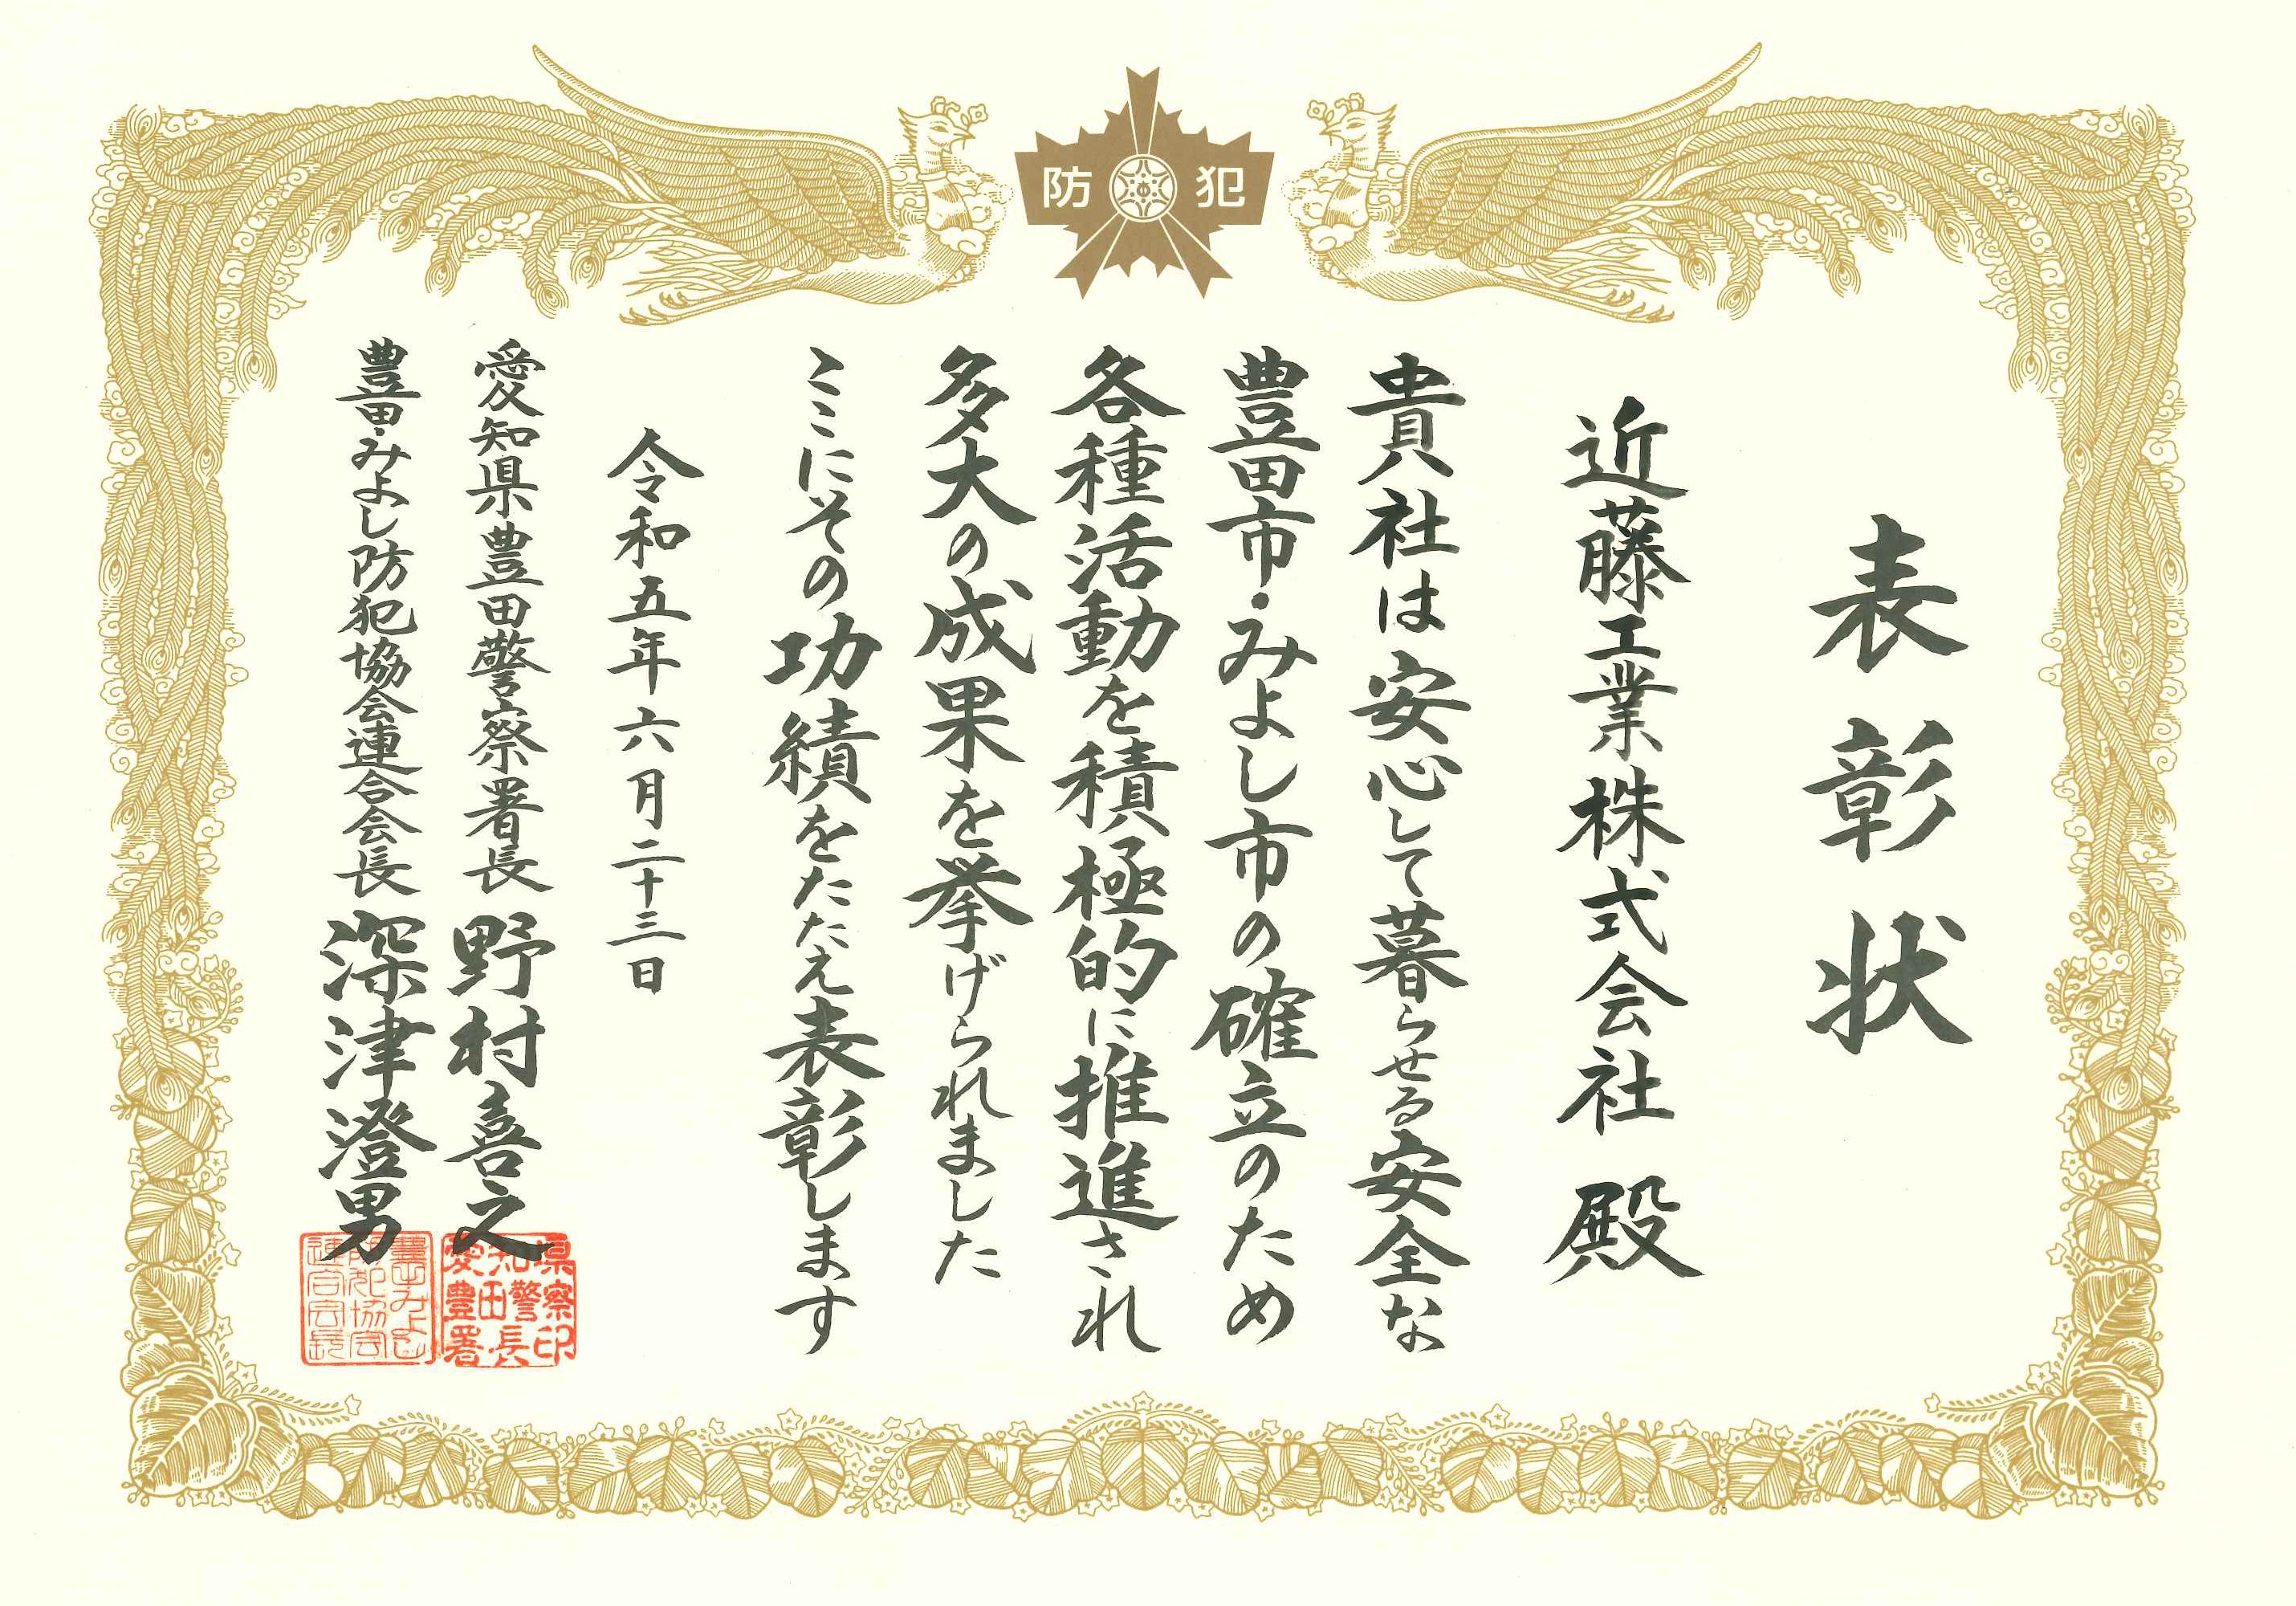 防犯
表彰状
近藤工業株式会社 殿
貴社は安心して暮らせる安全な
豊田市・みよし市の確立のため
各種活動を積極的に推進され
多大の成果を挙げられました
ここにその功績をたたえ表彰します
令和五年六月二十三日
愛知県豊田警察署長 野村喜之
豊田・みよし防犯協会連合会長 深津澄男
愛知県
豊田警察
署長印
豊田みよし
防犯協会
連合会長